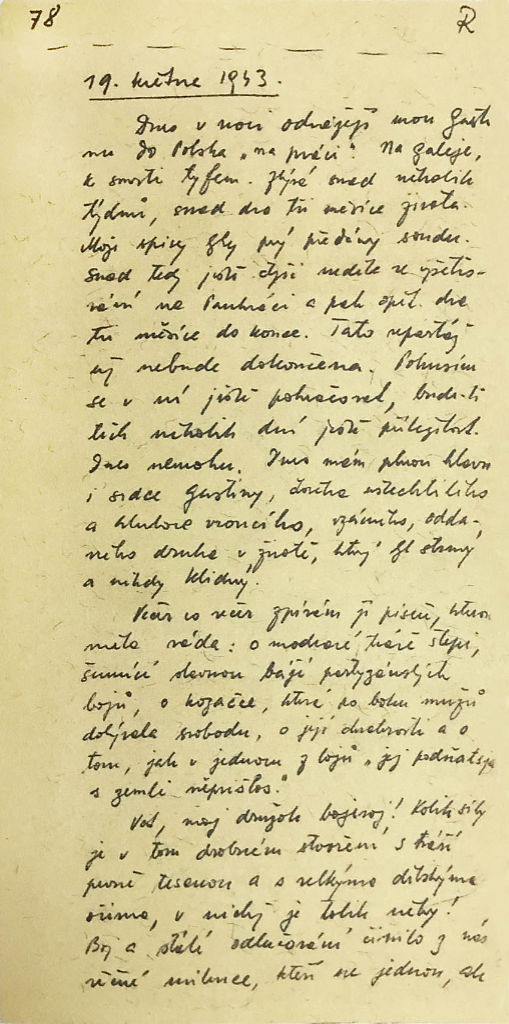 78 R
19. května 1943.
Dnes v noci odvážejí mou Gusti-
nu do Polska „na práci“. Na galeje,
k smrti tyfem. Zbývá snad několik
týdnů, snad dva tři měsíce života.
Moje spisy byly prý předány soudu.
Snad tedy ještě čtyři neděle ve vyšetřo-
vání na Pankráci a pak opět dva
tři měsíce do konce. Tato reportáž
už nebude dokončena. Pokusím
se v ní ještě pokračovat, bude-li
těch několik dní ještě příležitost.
Dnes nemohu. Dnes mám plnou hlavu
i srdce Gustiny, člověka ušlechtilého
a hluboce vroucího, vzácného, odda-
ného druha v životě, který byl strmý
a nikdy klidný.
Večer co večer zpívám jí píseň, kterou
měla ráda: o modravé trávě stepi,
šumící slavnou bájí partyzánských
bojů, o kozačce, která po boku mužů
dobývala svobodu, o její chrabrosti a o
tom, jak v jednom z bojů „jej podňatsja
s zemli něprišlos.“
Vot, moj družok bojevoj! Kolik síly
je v tom drobném stvoření s tváří
pevně tesanou a s velkýma dětskýma
očima, v nichž je tolik něhy!
Boj a stálé odlučování činilo z nás
věčné milence, kteří ne jednou, ale